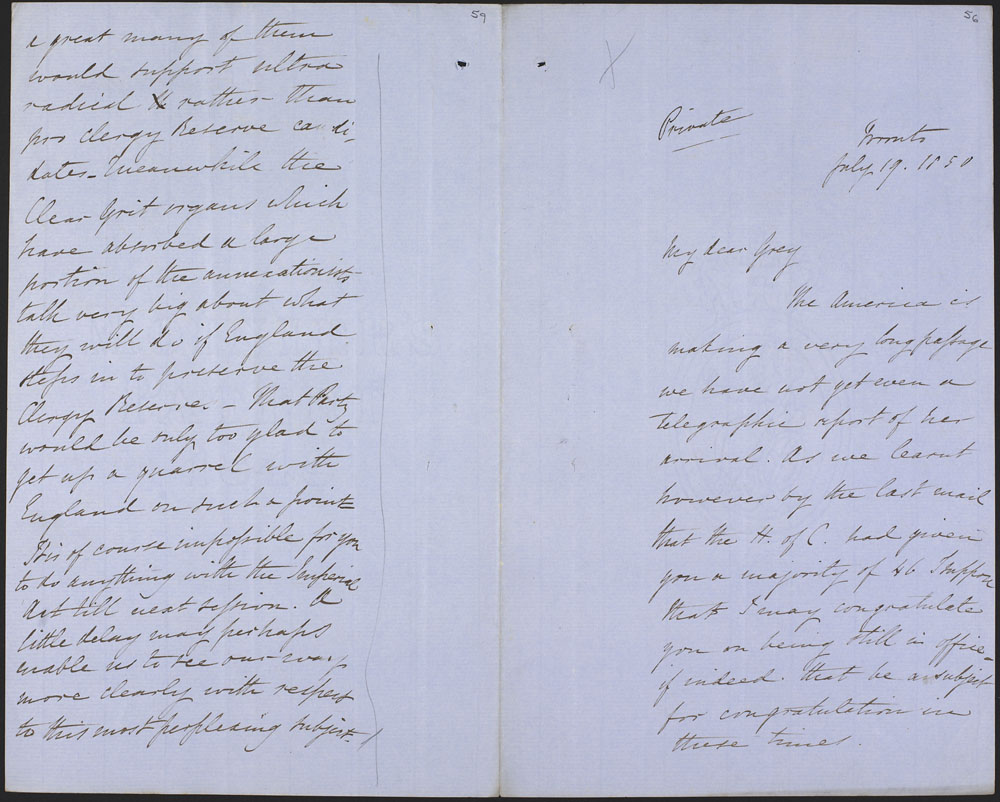 59
a great many of them
would support ultra
radical rather than
pro Clergy Reserve candi-
dates - Meanwhile the
Clear Grit organs which
have absorbed a large
portion of the annexationists
talk very big about what
they will do if England
steps in to preserve the
Clergy Reserves - That Party
would be only too glad to
get up a quarrel with
England on such a point -
It is of course impossible for you
to do anything with the Imperial
Act till next session. A
little delay may perhaps
enable us to see our way
more clearly with respect
to this most perplexing subject -
56
Private
Toronto
July 19. 1850
My dear Grey
The America is
making a very long passage
we have not yet even a
Telegraphic report of her
arrival. As we learnt
however by the last mail
that the H. of C. had given
you a majority of 46 I suppose
that I may congratulate
you on being still in office -
if indeed that be a subject
for congratulation in
these times.